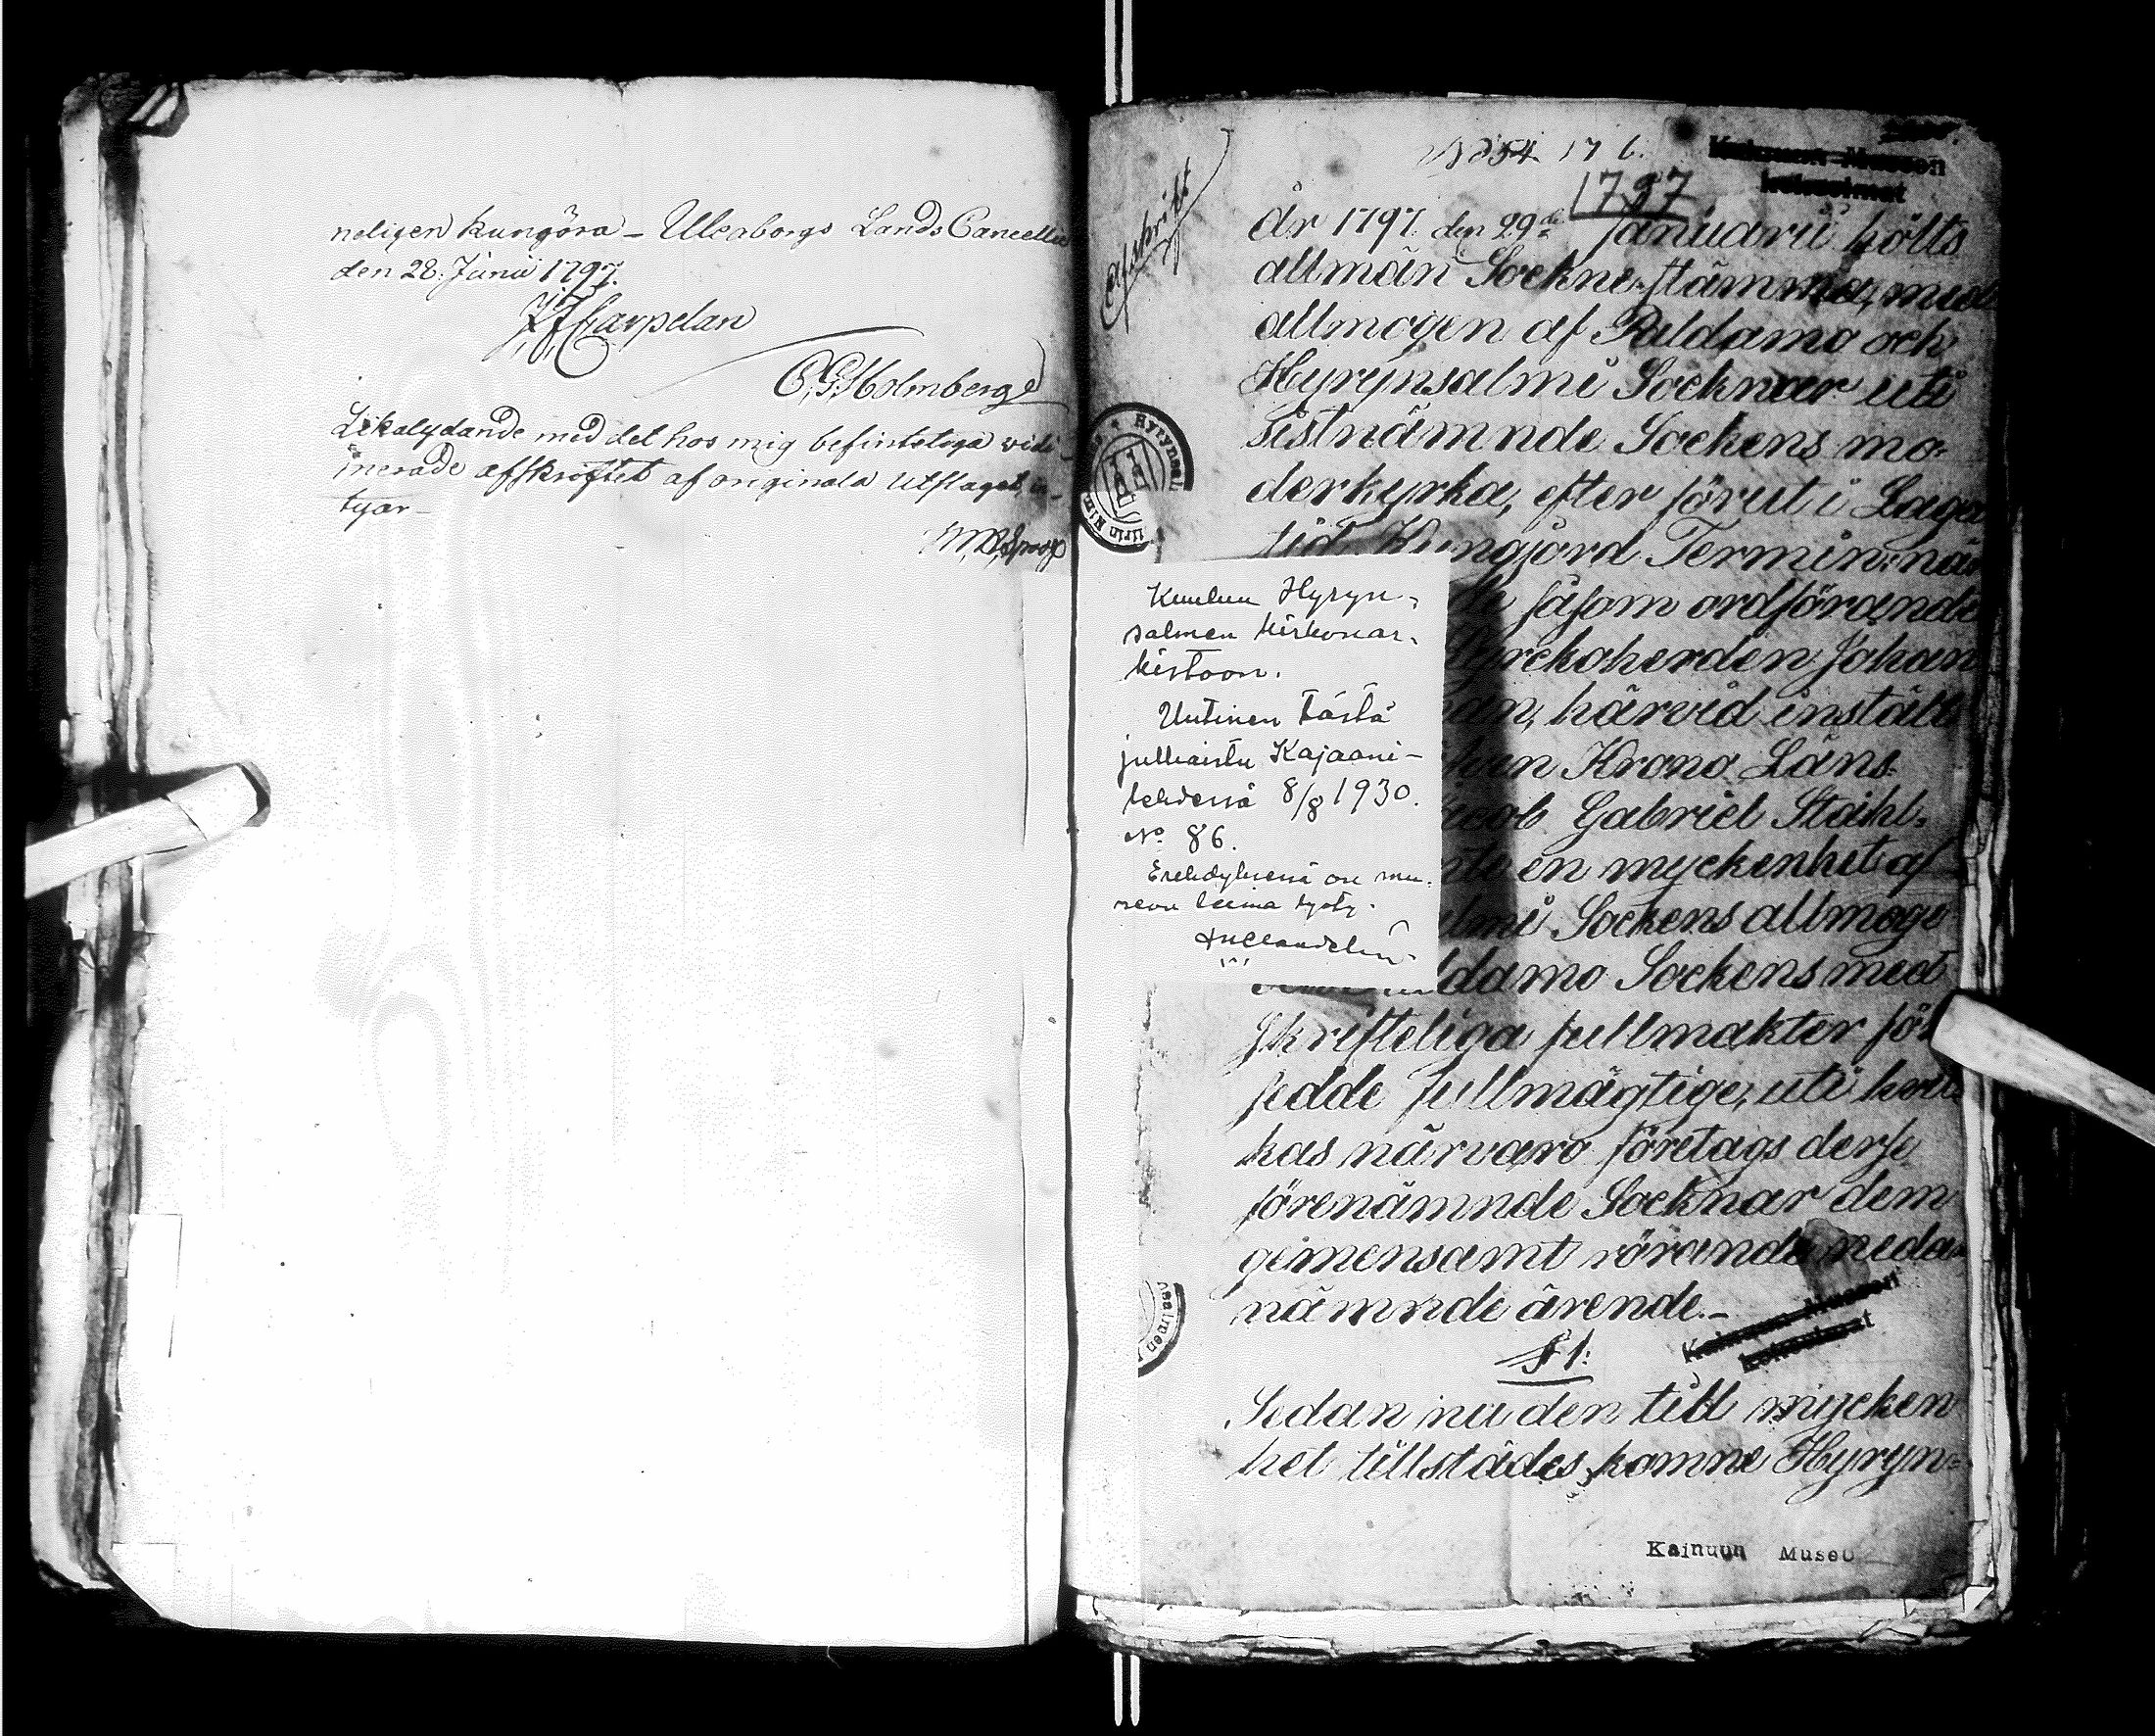 neligen kungöra – Uleaborgs Lands Cancellie
den 28. Junii 1797.
Carpelan
C. G. Holmberg
Likalydande med det hos mig befinteliga vidi-
merade affskriftet af originala Utslaget
tygar –
Afskrift
17
1797
År 1797 den 29de Januarii hölts
allmän Sockne-stämma, med
allmogen af Paldamo och
Hyrynsalmi Socknar uti
sistnämnde Sockens mo-
derkyrka, efter förut i Laga
tid Kungjord Termin: när
såsom ordförande
Kyrckoherden Johan
härvid instält
Krono Läns-
Gabriel Ståhl-
en myckenhet af
Sockens allmoge
Sockens med
skrifteliga fullmakter för
sedde fullmägtige, uti hvil
kas närvaro företags desse
förenämnde Socknar dem
gemensamt rörande nedan
nämnde ärende. –
§ 1:
Sedan nu den till mycken
het tillstädes komne Hyryn=
Kuuluu Hyryn-
salmen kirkonar-
kistoon.
Uutinen tästä
julkaistu Kajaani-
lehdessä 8/8 1930.
No 86.
Erehdyksessä on mu-
seon leima lyöty.
Kainuun Museon
kokoelmat
Kainuun Museon
kokoelmat
Kainuun Museo